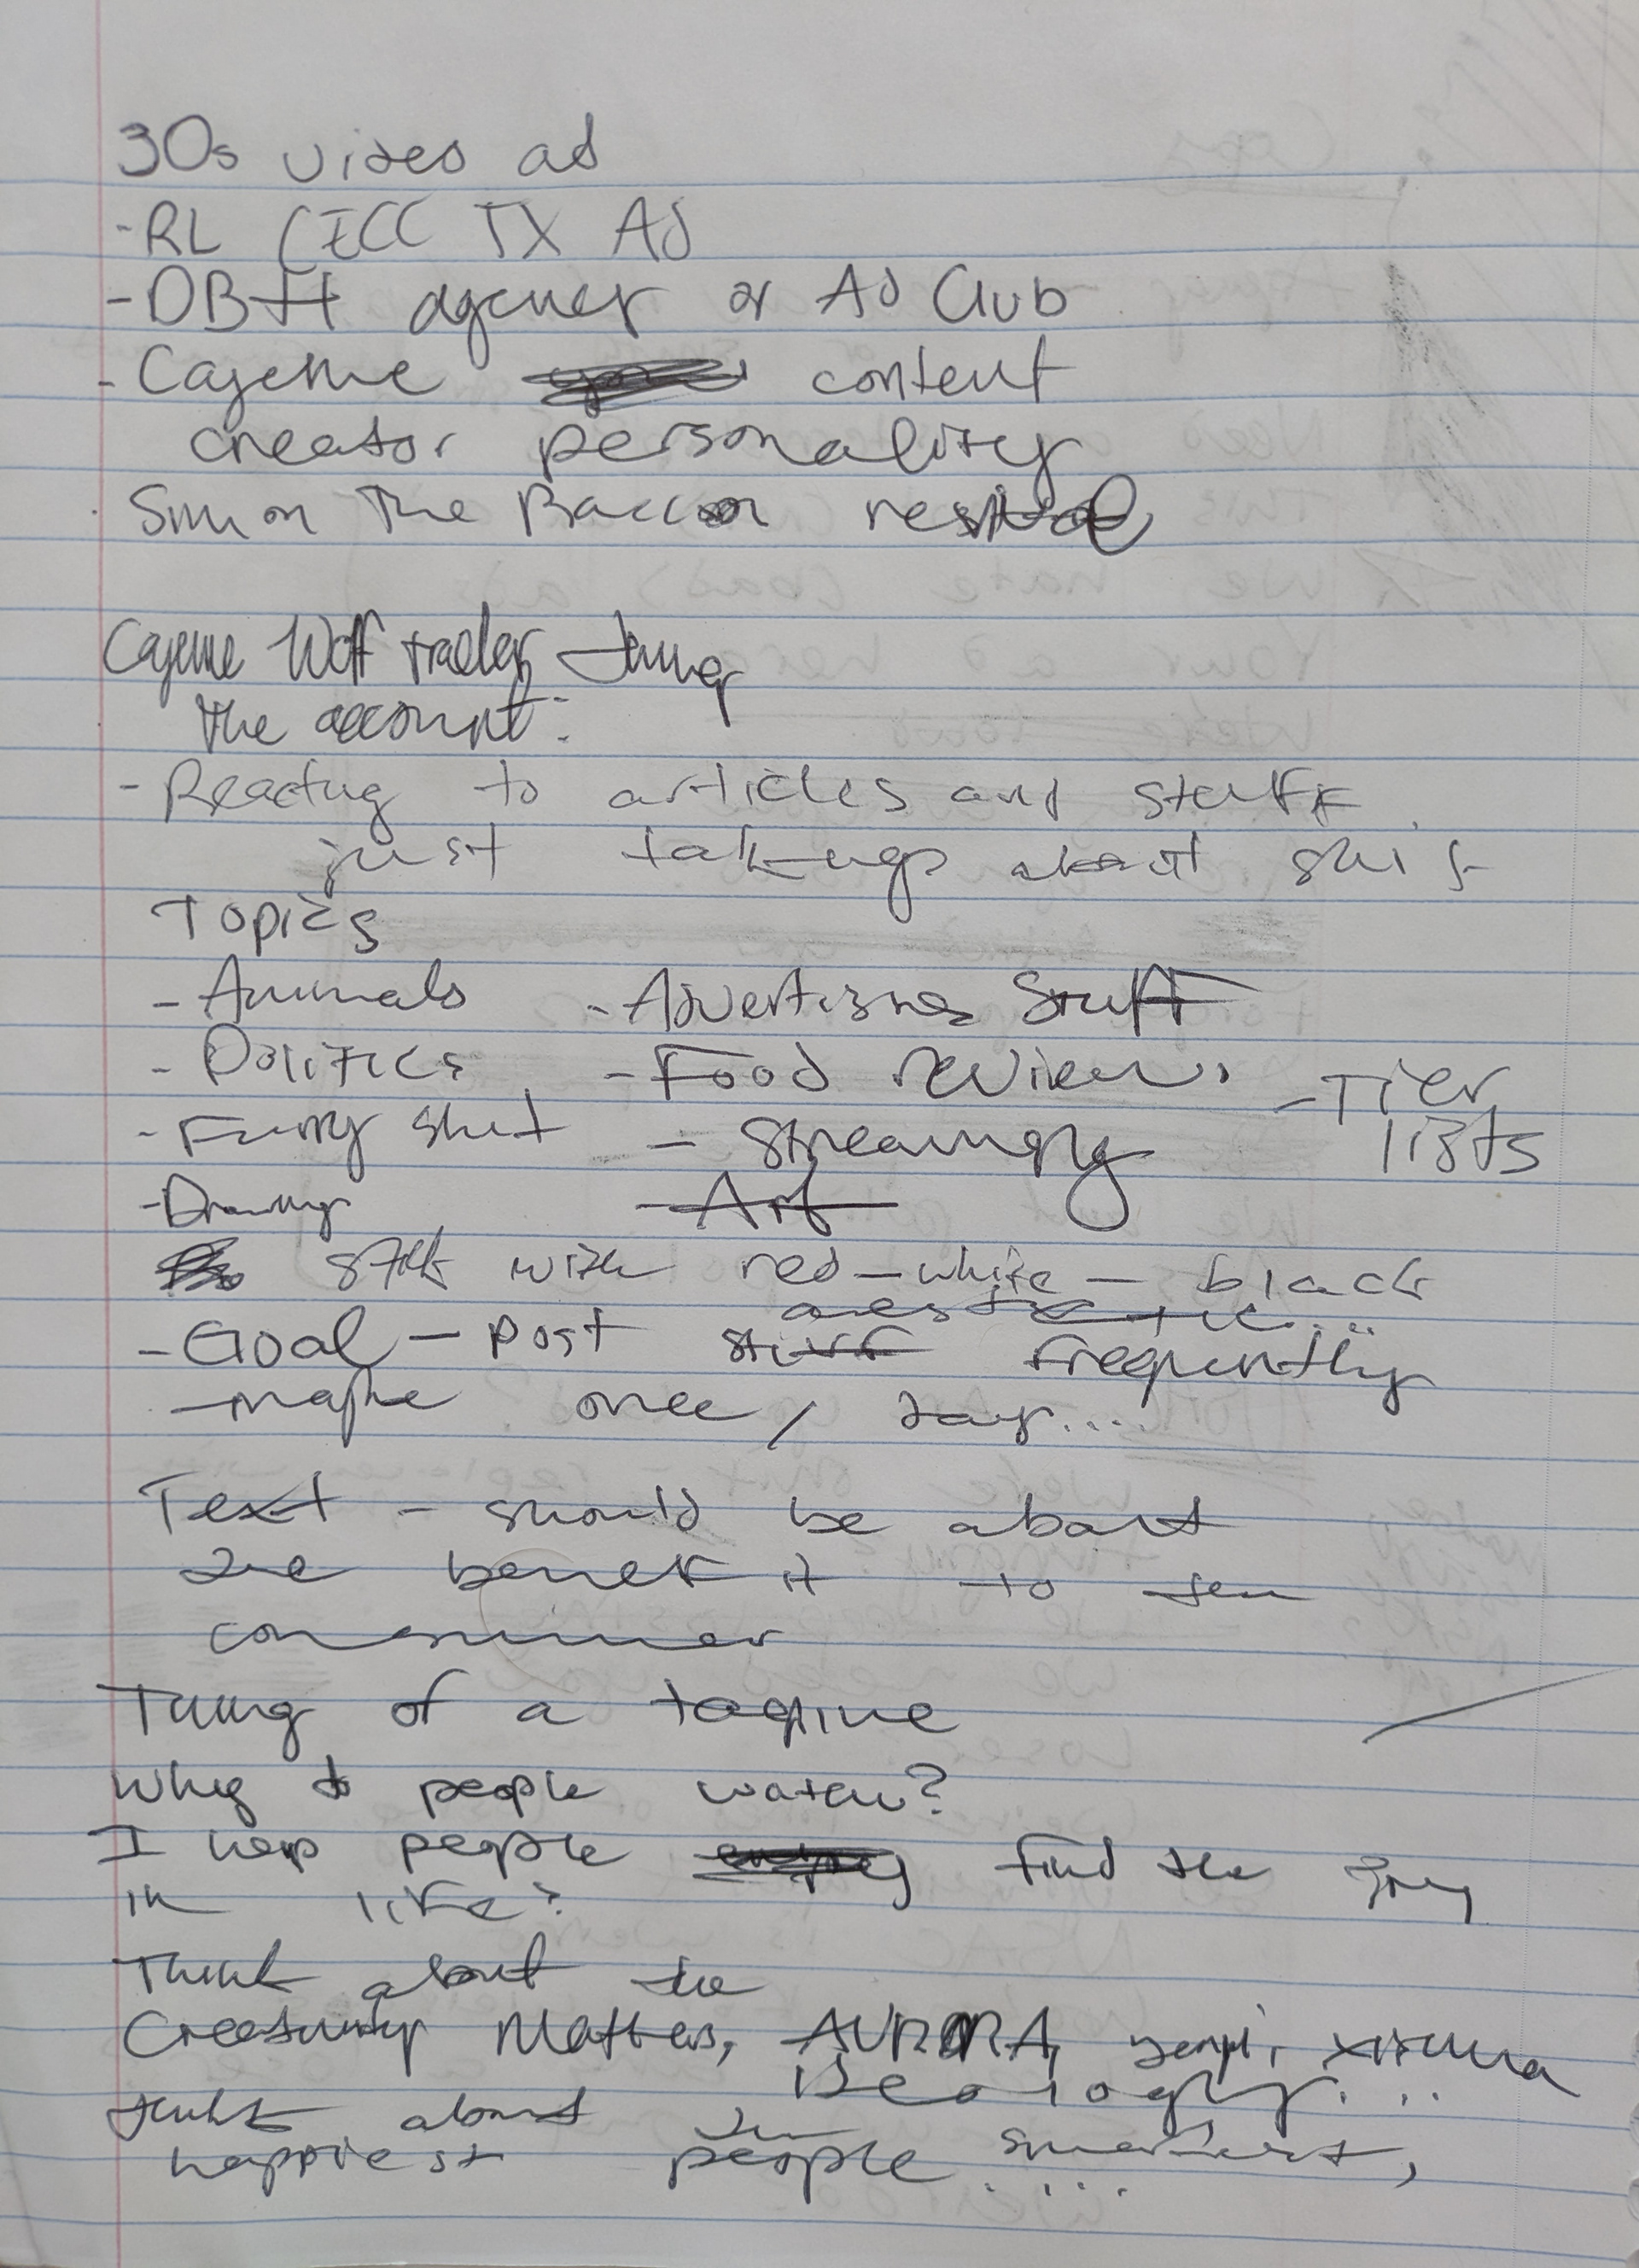 30s video ad
-RL CICC TX Ad
-DBH agency or Ad Club
-Cayenne content
creator personality
Simon the Baccoon
Cayenne Wolf trader,
the account:
-Reacting to articles and stuff
just talking about shit
Topics
-Animals -Advertising Stuff
-Politics -Food reviews -Tier
-Furry shit -Streaming lists
-Drawing -Art
stuff with red-white-black
aesthetic...
-Goal-post stuff frequently
-maybe once/day....
Text - should be about
the benefit to the
consumer
Thing of a tagline
Why do people watch?
I help people find the joy
in life?
Think about the
Creativity Matters, AURORA,
Ideology...
think about the smartest,
happiest people.....